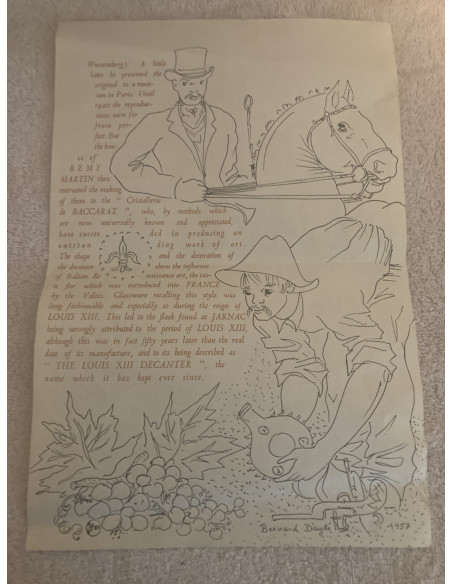 (Wurtemberg). A little
later he presented the
original to a muse-
um in Paris. Until
1920 the reproduc-
tions were far
from per-
fect. But
the hou-
se of
REMY
MARTIN then
entrusted the making
of them to the " Cristallerie
de BACCARAT ", who, by methods which
are now universally known and appreciated,
have succee ded in producing an
outstan ding work of art.
The shape and the decoration of
the decanter show the influence
of Italian Re naissance art, the
is fler which was introduced into FRANCE
by the Valois. Glassware recalling this style was
long fashionable and especially so during the reign of
LOUIS XIII. This led to the flask found at JARNAC
being wrongly attributed to the period of LOUIS XIII,
although this was in fact fifty years later than the real
date of its manufacture, and to its being described as
" THE LOUIS XIII DECANTER ", the
name which it has kept ever since.
Bernard 1957